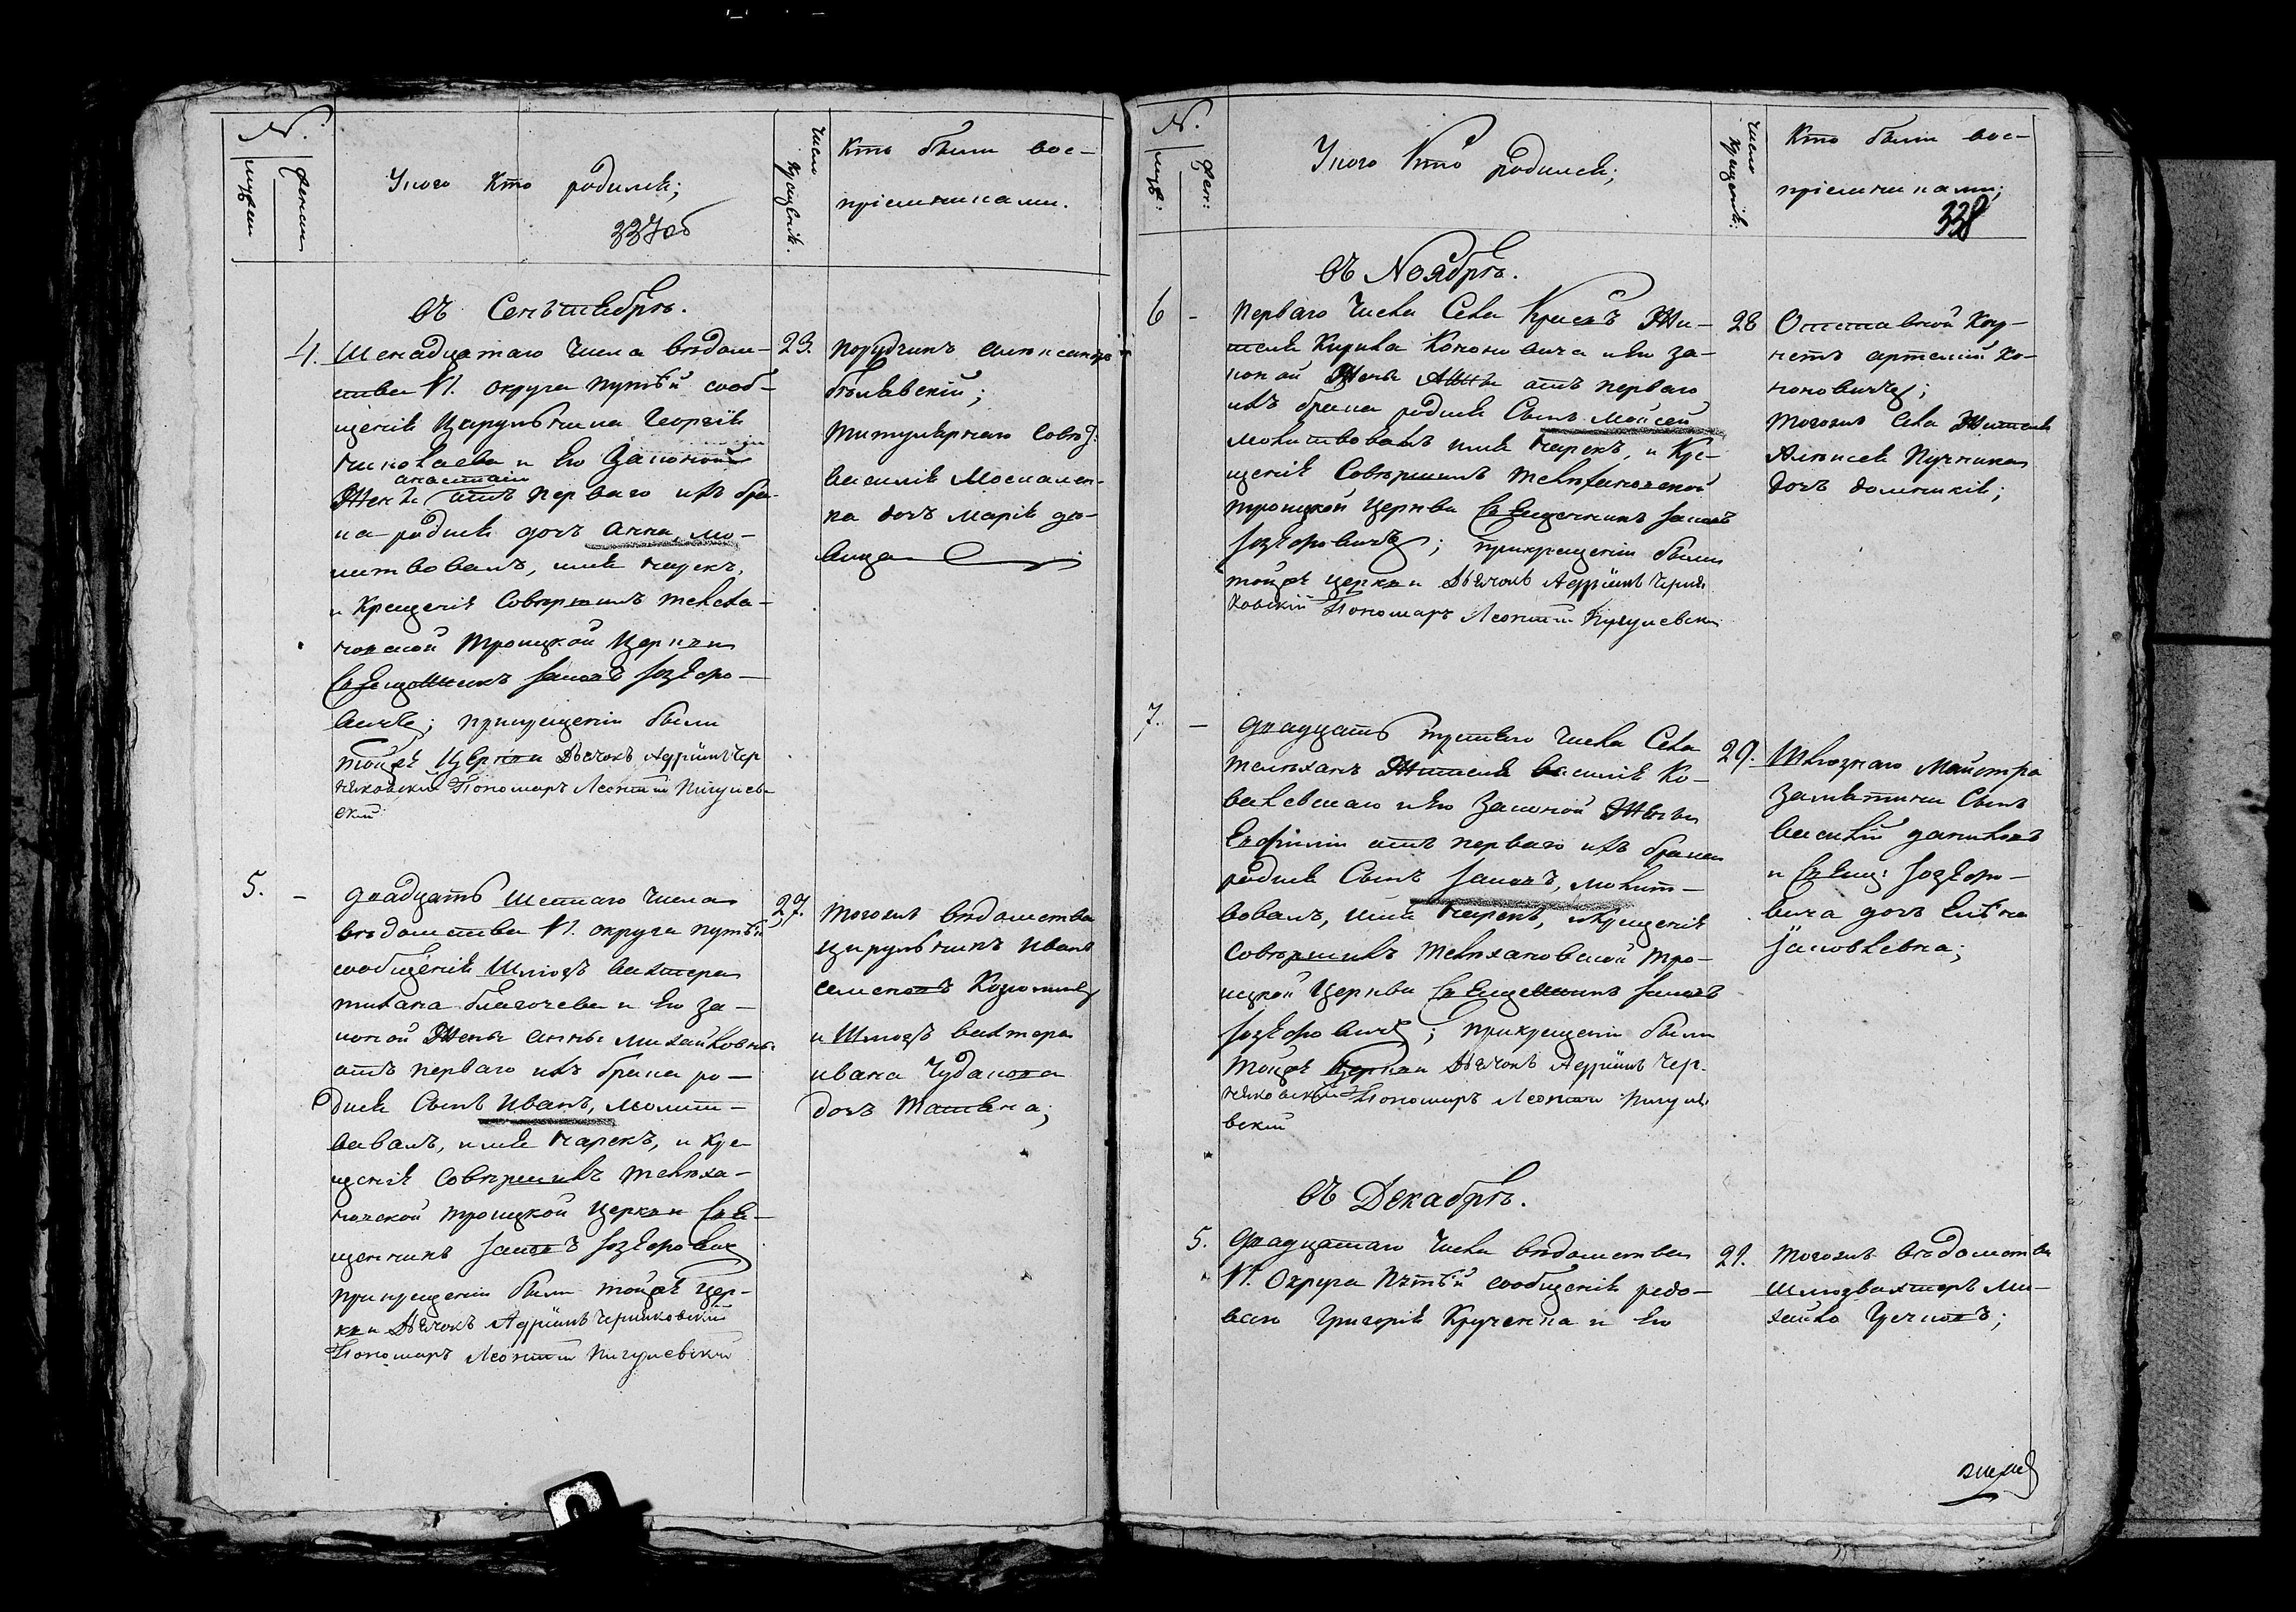 №.
мужеш
женши
У кого кто родился;
337об
число крещенія.
Кто были вос-
пріемниками.
Въ Сентябрѣ.
4. Шенадцатаго числа вѣдом-
ства VI. округа путѣй сооб-
щенія Цирульника Георгія
Николаева и Его Законной
анастасіи
Жены отъ перваго ихъ бра-
ка родися дочъ Анна, мо-
литвовалъ, имя нарекъ,
и Крещеніе Совершилъ телеха-
новской Троицкой Церкви
Священникъ Іаковъ Іозефо-
вичъ; прикрещеніи были
тойже Церкви Дьячокъ Адріанъ Чер
няковскій Пономаръ Леонтій Пигулев-
скій
23. порудчикъ александръ
бѣлявскій;
титулярнаго Совѣт:
василія Москален-
ка дочъ марія дѣ-
вица
5. - Двадцатъ Шестаго Числа
вѣдомства VI. округа путѣй
сообщенія Шлюзъ вахтера
тихана благочева и Его за-
конной Жены анны михайловны
отъ перваго ихъ брака ро-
дися Сынъ Иванъ, молит-
вавалъ, имя нарекъ, и кре-
щеніе Совершилъ телеха-
новской троицкой церкви Свя-
щенникъ Іаковъ Іозефович
прикрещеніи были тойже Цер-
кви Дьячокъ Адріанъ Черняковскій
Пономаръ Леонтій Пигулевскій
27. тогожъ вѣдомства
цирульникъ иванъ
семеновъ
и Шлюзъ вахтера
ивана Чудакова
дочъ Татьяна;
№.
муж:
жен:
У кого Кто родился;
число крещенія:
Кто были вос-
пріемниками;
338
Въ Ноябрѣ.
6 - Перваго Числа Села Жи-
теля Кирила Кононовича и Его за-
конной Жены Анны отъ перваго
ихъ брака родися Сынъ Моисей
молитвовалъ имя нарекъ, и Кре-
щеніе Совершилъ телеханской
троицкой Церкви Священникъ Іаковъ
Іозефовичъ; прикрещеніи были
тойже церкви Дьячокъ Адріанъ Черня
ковскій Пономаръ Леонтій Пигулевскій
28 Отставной Кор-
нетъ артемій Ко-
нановичъ;
тогожъ Села Жителя
Алексея Пучника
дочъ доминикія;
7. - Двадцатъ третьего Числа Села
телеханъ Жителя василія Ко-
валевскаго и Его Законной Жены
Евфиміи отъ перваго ихъ брака
родися Сынъ Іаковъ, молит-
вовалъ, имя нарекъ, и Крещеніе
Совершилъ Телехановской тро-
ицкой Церкви Священникъ Іаковъ
Іозефовичъ; прикрещеніи были
тойже Церкви Дьячокъ Адріанъ Чер-
няковскій Пономаръ Леонтій Пигуле
вскій
29. Шлюзнаго Майстра
Замятини Сынъ
василій даниловъ
и Свящ: Іозефо-
вича дочъ Елѣна
Іаковлевна;
Въ Декабрѣ.
5. Двадцатаго Числа вѣдомства
VI. Округа Пѣтѣй сообщенія редо-
ваго Григорія Крученка и Его
21. тогожъ вѣдомства
шлюзвахтеръ Ми-
хайло